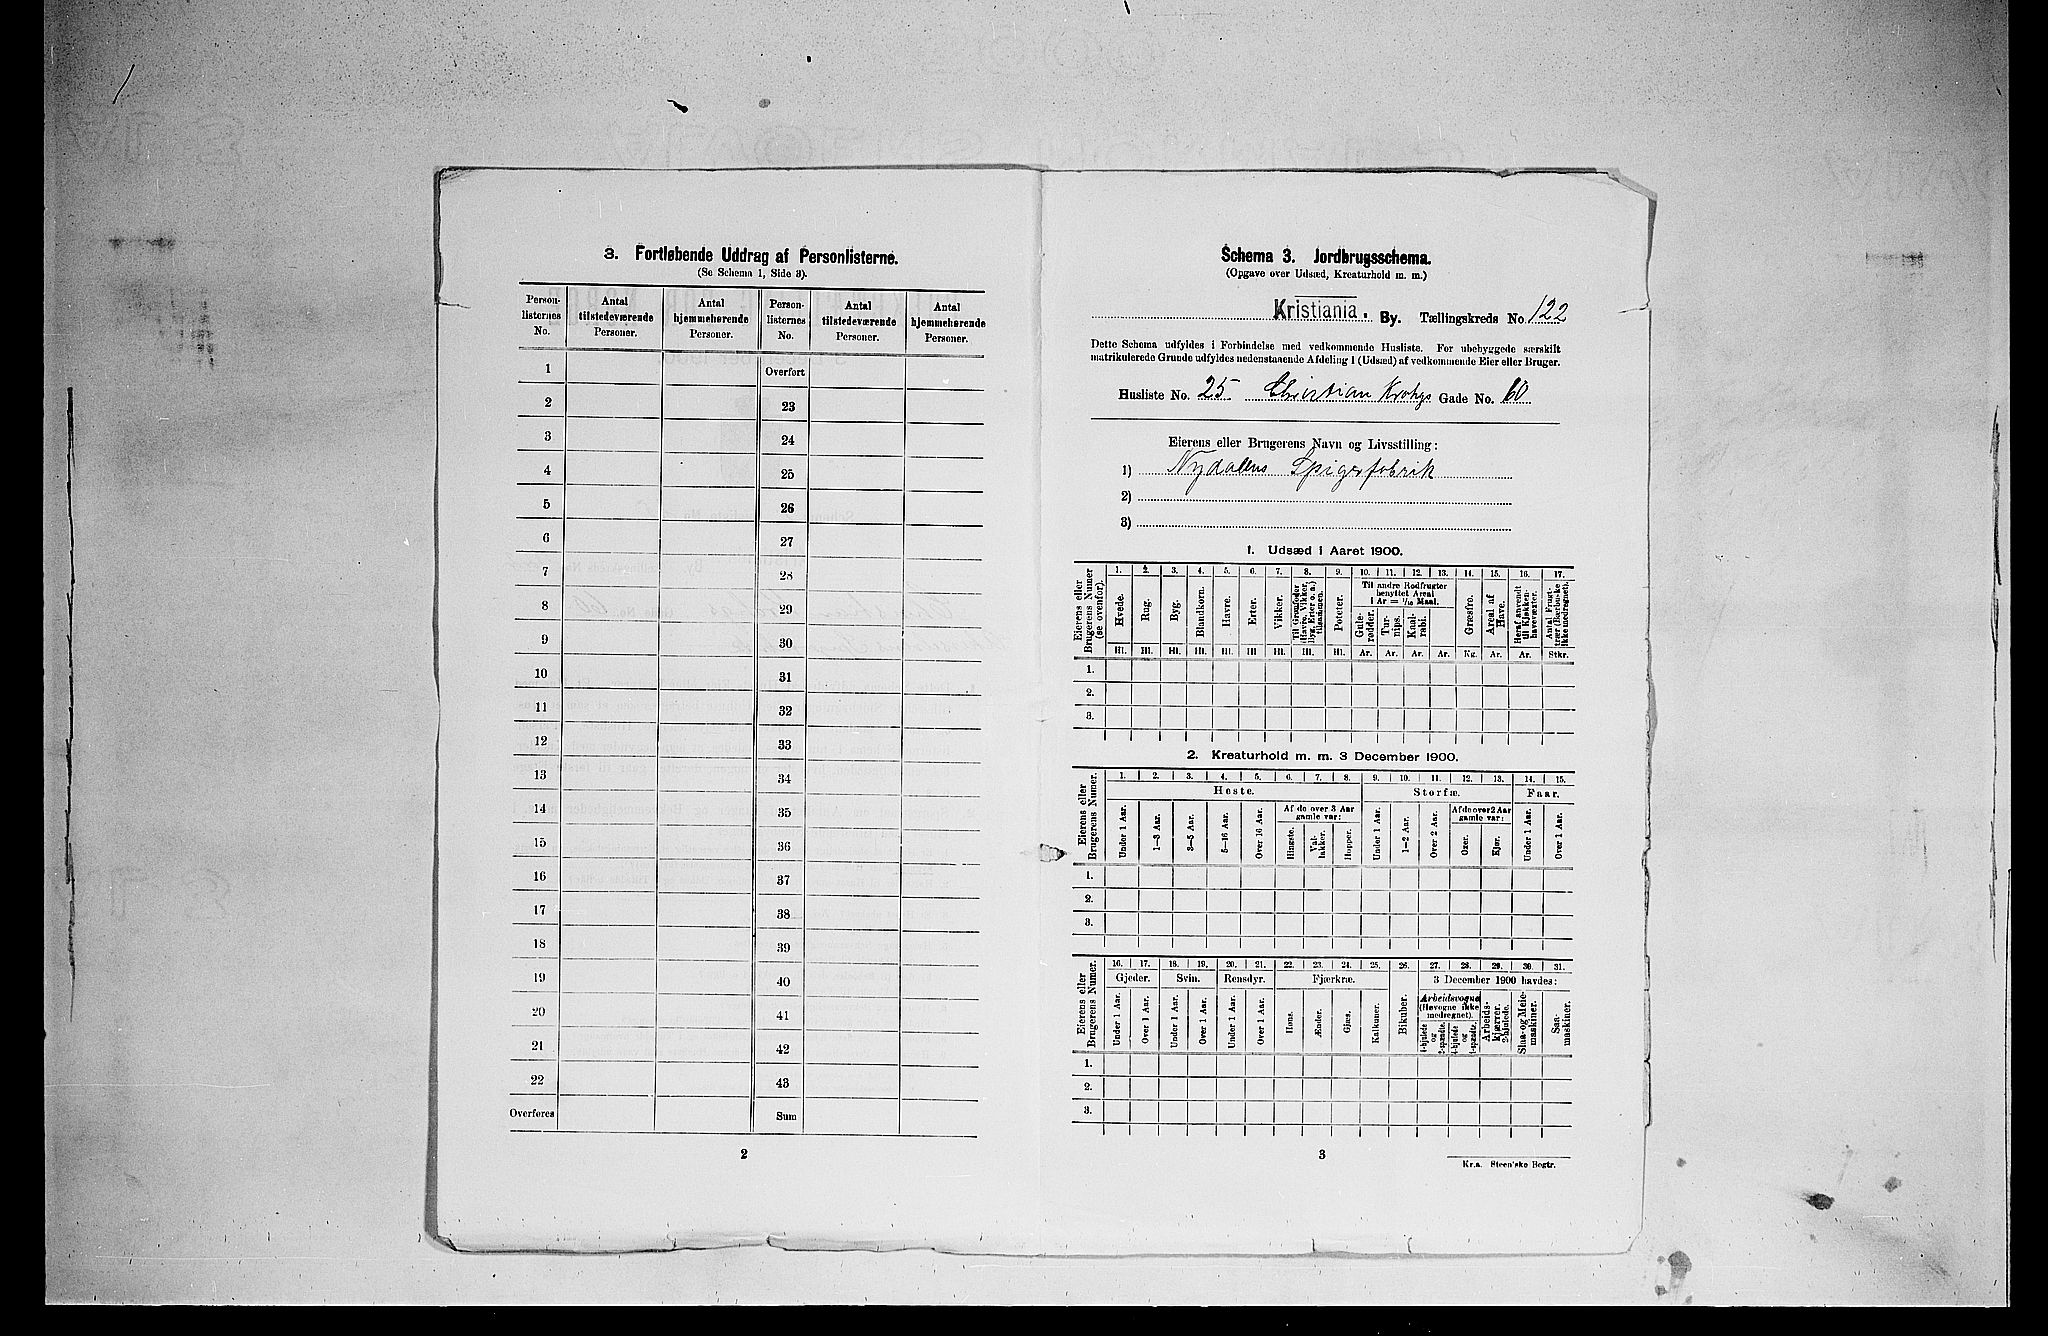 3. Fortløbende Uddrag af Personlisterne.
(Se Schema 1, Side 3).
Person-listernes No. | Antal tilstedeværende Personer. | Antal hjemmehørende Personer. | Person-listernes No. | Antal tilstedeværende Personer. | Antal hjemmehørende Personer.
1 Overført
2 23
3 24
4 25
5 26
6 27
7 28
8 29
9 30
10 31
11 32
12 33
13 34
14 35
15 36
16 37
17 38
18 39
19 40
20 41
21 42
22 43
Overføres Sum
2
Schema 3. Jordbrugsschema.
(Opgave over Udsæd, Kreaturhold m. m.)
Kristiania. By. Tællingskreds No. 122
Dette Schema udfyldes i Forbindelse med vedkommende Husliste. For ubebyggede særskilt
matrikulerede Grunde udfyldes nedenstaaende Afdeling 1 (Udsæd) af vedkommende Eier eller Bruger.
Husliste No. 25 Christian Krohgs Gade No. 60
Eierens eller Brugerens Navn og Livsstilling:
1) Nydalens Spigerfabrik
2)
3)
1. Udsæd i Aaret 1900.
Eierens eller Brugerens Numer (se ovenfor).
1. 2. 3. 4. 5. 6. 7. 8. 9. 10. 11. 12. 13. 14. 15. 16. 17.
Til andre Rodfrugter benyttet Areal i Ar = 1/10 Maal.
Hvede. Rug. Byg. Blandkorn. Havre. Erter. Vikker. Til Grønfoder (Havre, Vikker, Byg, Erter o. a.) tilsammen. Poteter. Gule-rødder. Tur-nips. Kaal-rabi. Græsfrø. Areal af Have. Heraf anvendt til Kjøkken-havevæxter. Antal Frugt-trær (Bærbuske ikke medregnet).
Hl. Hl. Hl. Hl. Hl. Hl. Hl. Hl. Hl. Ar. Ar. Ar. Ar. Kg. Ar. Ar. Stkr.
1.
2.
3.
2. Kreaturhold m. m. 3 December 1900.
Eierens eller Brugerens Numer.
1. 2. 3. 4. 5. 6. 7. 8. 9. 10. 11. 12. 13. 14. 15.
Heste. Storfæ. Faar.
Af de over 3 Aar gamle var: Af de over 2 Aar gamle var:
Under 1 Aar. 1—3 Aar. 3—5 Aar. 5—16 Aar. Over 16 Aar. Hingste. Val-lakker. Hopper. Under 1 Aar. 1—2 Aar. Over 2 Aar. Oxer. Kjør. Under 1 Aar. Over 1 Aar.
1.
2.
3.
Eierens eller Brugerens Numer.
16. 17. 18. 19. 20. 21. 22. 23. 24. 25. 26. 27. 28. 29. 30. 31.
Gjeder. Svin. Rensdyr. Fjærkræ. 3 December 1900 havdes:
Arbeidsvogne (Høvogne ikke medregnet).
Under 1 Aar. Over 1 Aar. Under 1 Aar. Over 1 Aar. Under 1 Aar. Over 1 Aar. Høns. Ænder. Gjæs. Kalkuner. Bikuber. 4-hjulede og 2-spændte. 4-hjulede og 1-spændte. Arbeids-kjærrer. 2-hjulede. Slaa- og Meie-maskiner. Saa-maskiner.
1.
2.
3.
3
Kr.a. Steen'ske Bogtr.